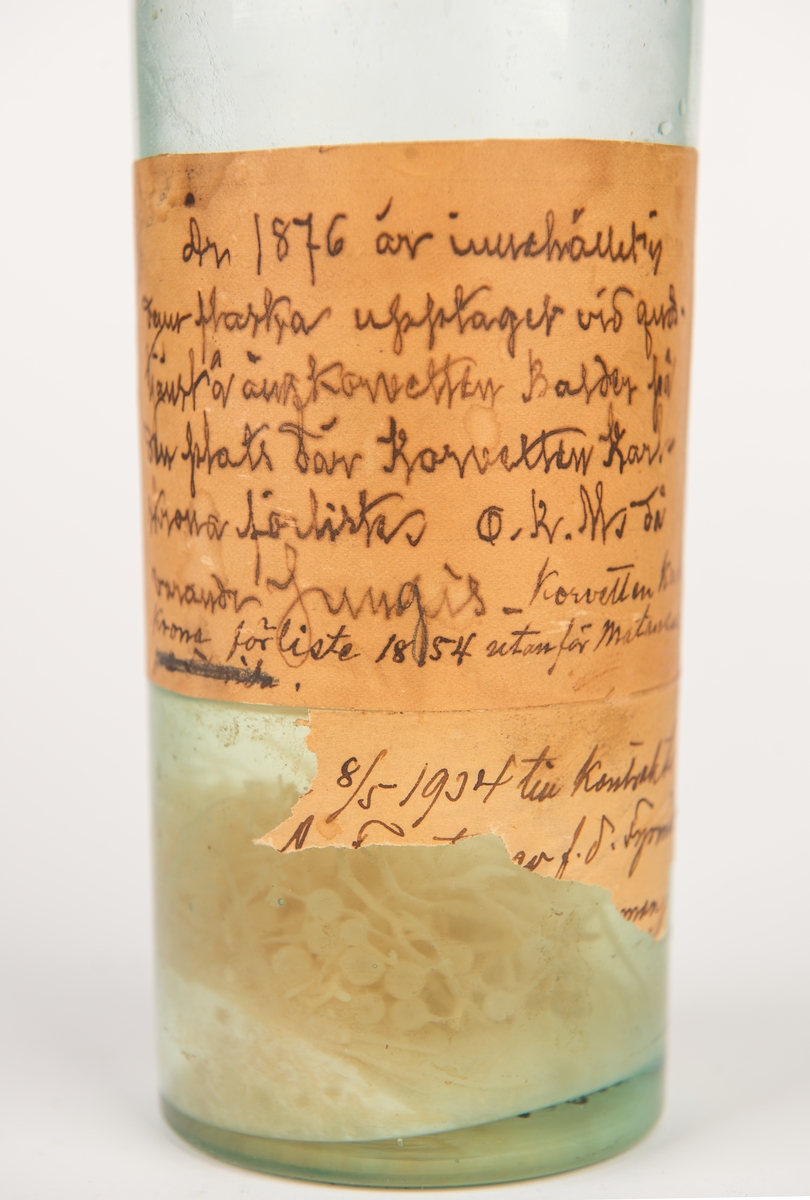 År 1876 är innehållet i
flaska upptaget vid guds-
tjenst å ång Korvetten Balder på
den plats där Korvetten Karl-
skrona förliste O.K. Ms då
varande Jungis - Korvetten Ka
Krona förliste 1854 utanför Matan
8/5 1934 till Kontrakt
av f.d. Fyrm
man